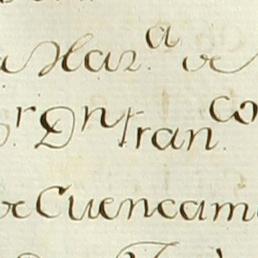 Har.ª de
r. Dn Fran.co
de Cuencam